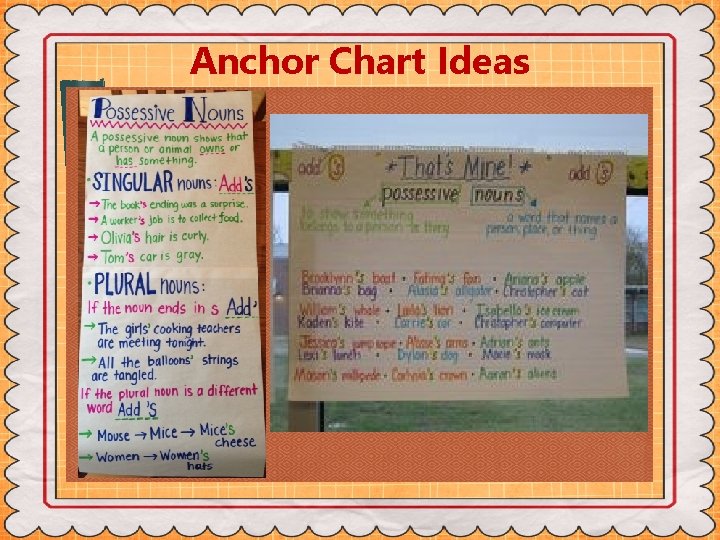 Anchor Chart Ideas
Possessive Nouns
A possessive noun shows that
a person or animal owns or
has something.
• SINGULAR nouns: Add 's
→ The book's ending was a surprise.
→ A worker's job is to collect food.
→ Olivia's hair is curly.
→ Tom's car is gray.
• PLURAL nouns:
If the noun ends in s Add '
→ The girls' cooking teachers
are meeting tonight.
→ All the balloons' strings
are tangled.
If the plural noun is a different
word Add 's
→ Mouse → Mice → Mice's
cheese
→ Women → Women's
hats
add 's
* That's Mine! *
add 's
possessive nouns
to show something
belongs to a person
a word that names a
person, place, or thing
Brooklynn's boat • Fatima's fan • Ariana's apple
Brianna's bag • Alasia's alligator • Christopher's cat
William's whale • Laila's lion • Isabella's ice cream
Kaden's kite • Carrie's car • Christopher's computer
Jessica's jump rope • Abbie's arms • Adrian's ants
Lexi's lunch • Dylan's dog • Marie's mask
millipede • crown • Aaron's aliens